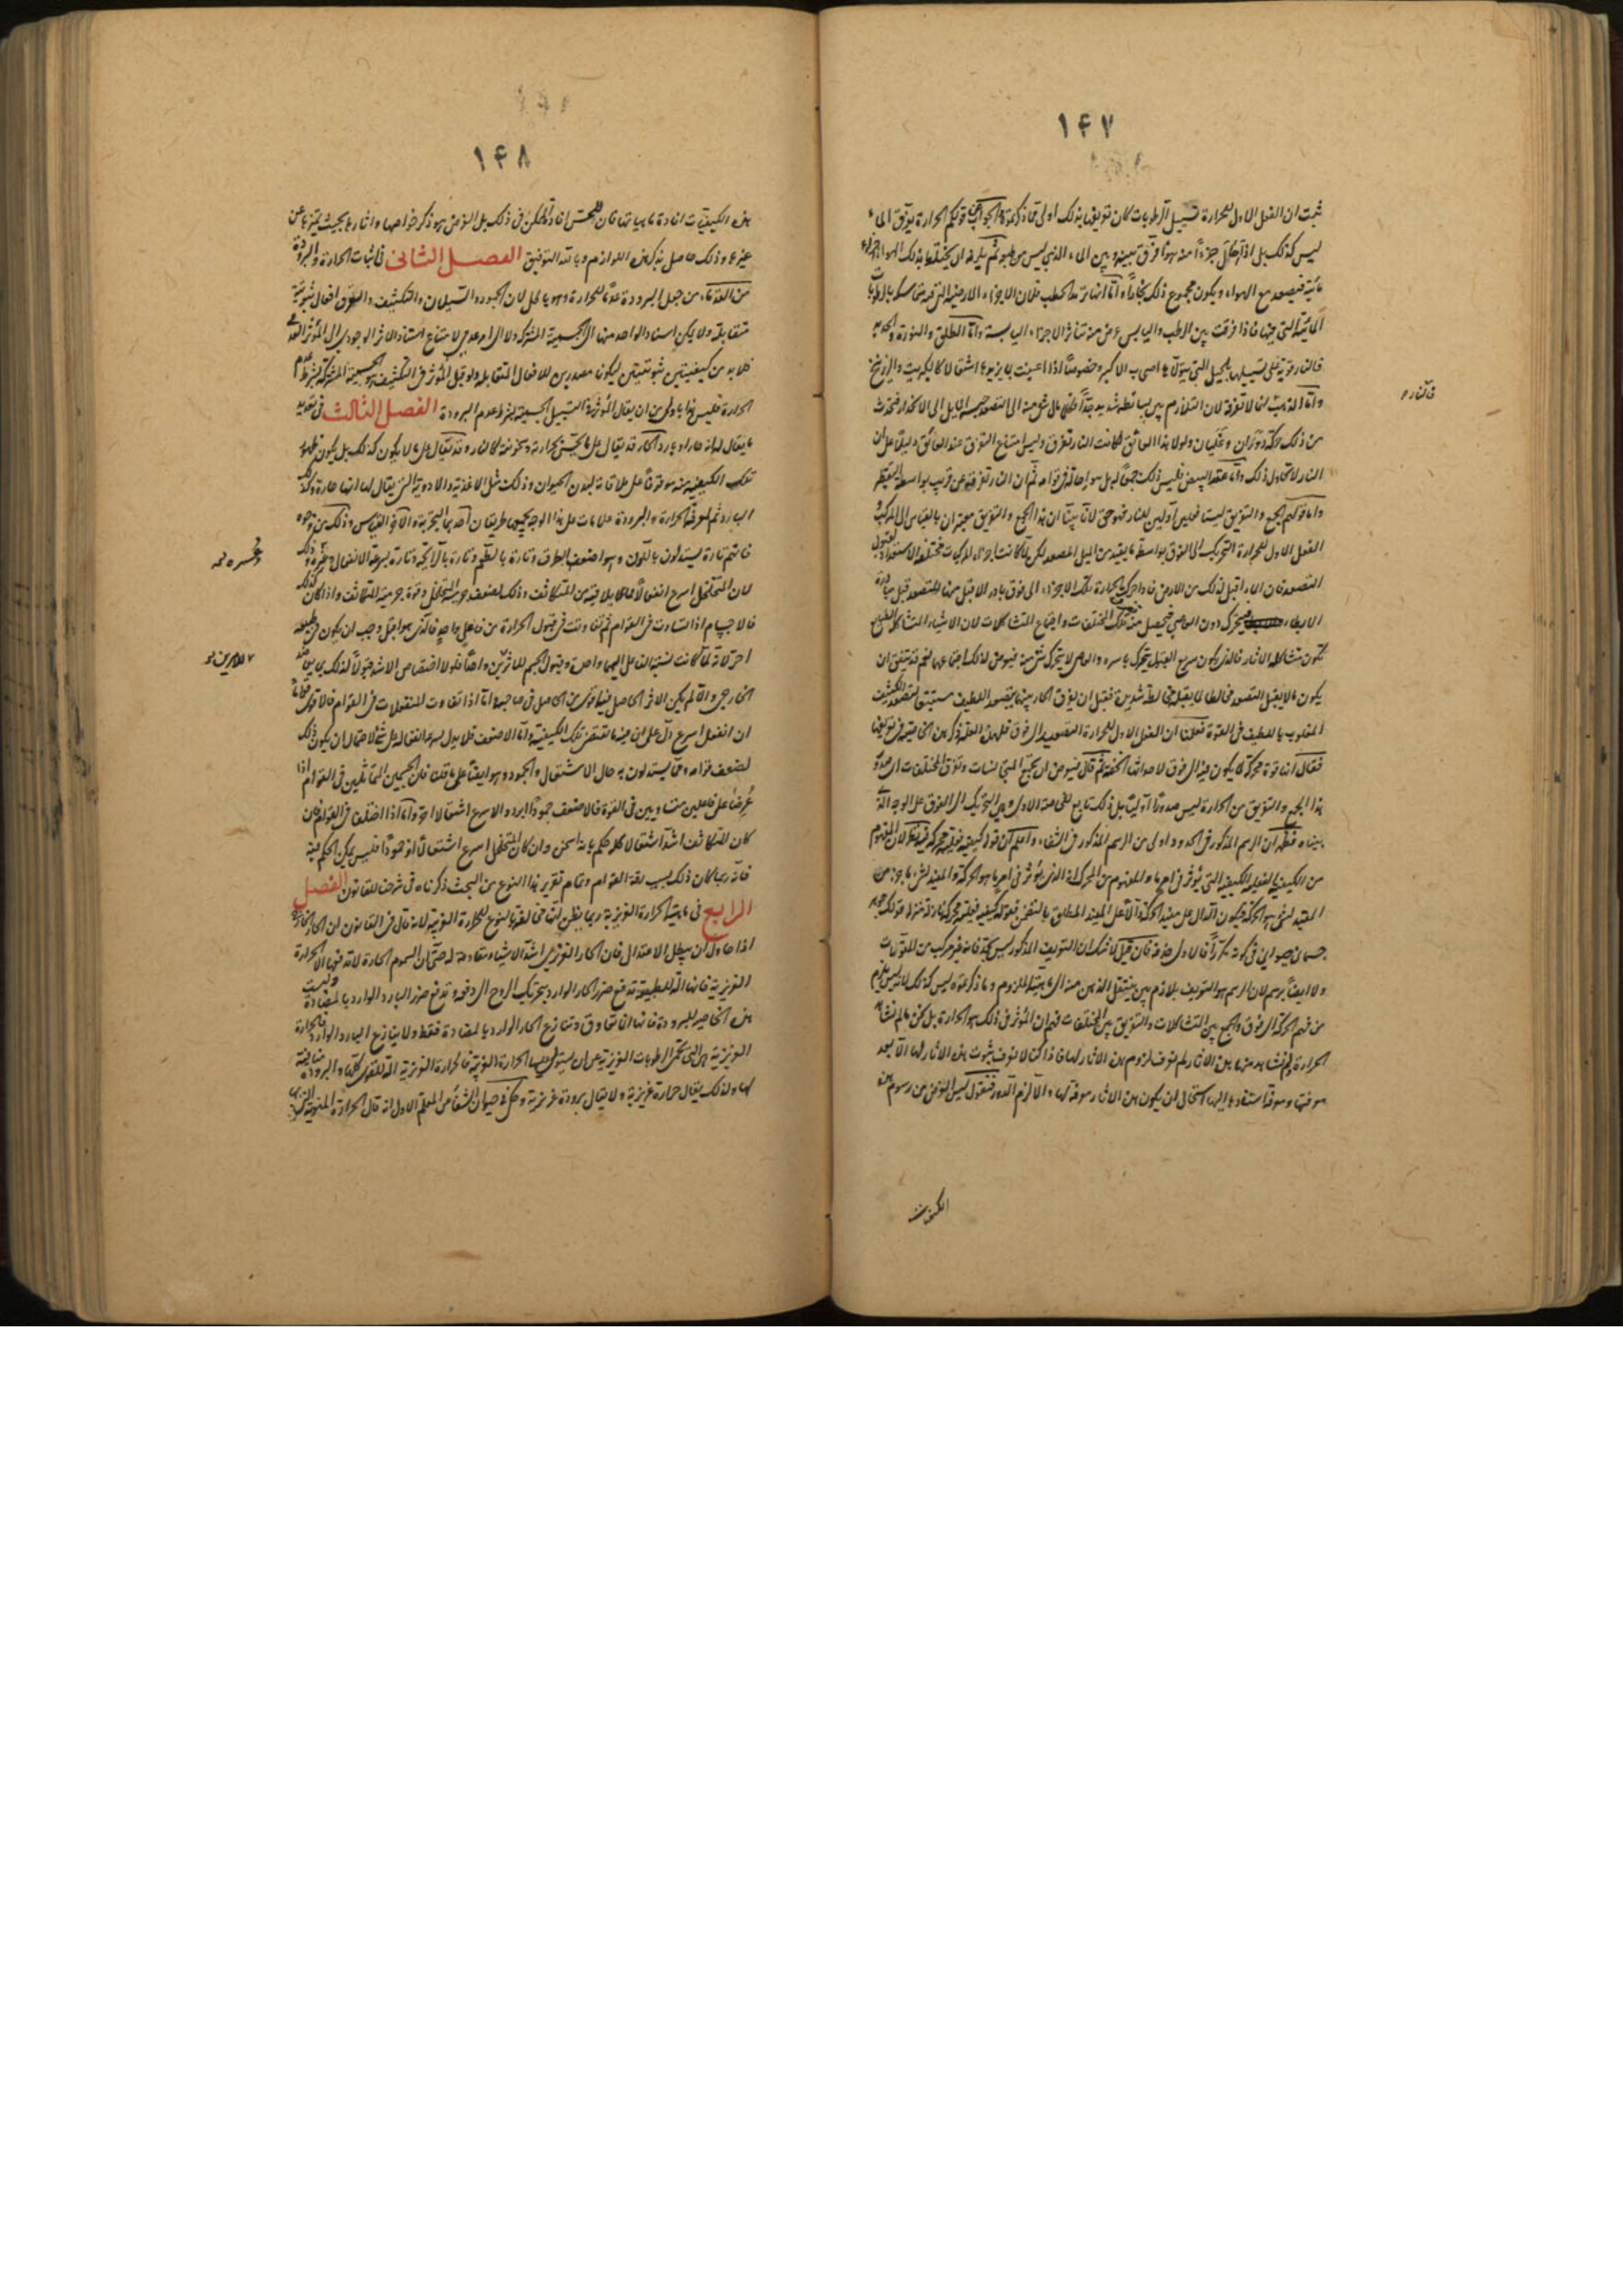 ١۴٧
ثبت ان الفعل الاول للحرارة تسييل الرطوبات كان تعريفها بذلك اولى مما ذكرتموه الجواب قولكم الحرارة يفرق الماء
ليس كذلك بل اذا احال جزءاً منه هواءً فرق بينه وبين الماء الذى ليس من طبعه ثم يلزمه ان يختلط بذلك الهواء اجزاء
مائية فيصعد مع الهواء ويكون مجموع ذلك بخاراً واما انها ترمد الحطب فلان الاجزاء الارضية التى فيه متماسكة بالرطوبات
المائية التى فيها فاذا فرقت بين الرطب واليابس عرض منه تناثر الاجزاء اليابسة واما الطلق والنورة والحديد
فالنار قوية على تسييلها بالحيل التى يتولاها اصحاب الاكسير وخصوصاً اذا اعينت بما يزيدها اشتعالا كالكبريت والزرنيخ
واما الذهب انما لا تفرقه لان التلازم بين بسائطه شديد جداً فكلما مال شئ منه الى التصعد حبسه المايل الى الانحدار فيحدث
من ذلك حركة دوران وغليان ولولا هذا العائق لكانت النار تفرقه وليس امتناع التفرق عند العائق دليلا على ان
النار لا تحاول ذلك واما عقد البيض فليس ذلك جمعاً له بل هو احالة فى قوامه ثم ان النار تفرقه عن قريب بواسطة التقطير
واما قولكم الجمع والتفريق ليستا فعلين اولين للنار فهو حق لانا بينا ان هذا الجمع والتفريق معتبران بالقياس الى المركب و
الفعل الاول للحرارة التحريك الى الفوق بواسطة ما يفيد من الميل المصعد لكن لما كانت اجزاء المركبات مختلفة الاستعداد لقبول
التصعد فان الماء اقبل لذلك من الارض فاذا حركت الحرارة تلك الاجزاء الى فوق بادر الاقبل منها للتصعد قبل مبادرة
الابطاء فيتحرك دون العاصى فيحصل منه تفرق المختلفات واجتماع المتشاكلات لان الاشياء المتشاكلة الطبائع
يكون متشاكلة الاثار فالذى يكون سريع القبول يتحرك باسره والعاصى لا يتحرك شئ منه فيعرض لذلك اجتماعهما نعم قد يتفق ان
يكون ما لا يقبل التصعد مخالطا لما يقبله مخالطة شديدة فقبل ان يفرق الحار بينهما يصعد اللطيف مستتبعا لتصعد الكثيف
المغلوب باللطيف فى القوة فعلمنا ان الفعل الاول للحرارة التصعيد الى فوق فلهذه العلة ذكر هذه الخاصية فى تعريفها
فقال انها قوة محركة لما يكون فيه الى فوق لاحداثها الخفة ثم قال فيعرض ان يجمع المتجانسات وتفرق المختلفات اى صدور
هذا الجمع والتفريق من الحرارة ليس صدورا اوليا بل ذلك تابع لفعله الاول وهو التحريك الى الفوق على الوجه الذى
بيناه فظهر ان الرسم المذكور فى الحدود اولى من الرسم المذكور فى الشفاء واعلم ان قوله كيفية فعلية محركة فيه نظر لان المفهوم
من الكيفية الفعلية الكيفية التى يؤثر فى امر ما والمفهوم من المحرك انه الذى يؤثر فى امر ما هو الحركة والمفيد لشئ ما جزء من
المفيد لشئ هو الحركة فيكون الدال على مفيد الحركة دالا على المفيد المطلق بالتضمن فقوله كيفية فعلية محركة نازل منزلة قولك جوهر
جسمانى حيوانى فى كونه تكرراً فالاول حذفه فان قيل لا شك ان التعريف المذكور ليس بحد فانه غير مركب من المقومات
ولا ايضاً برسم لان الرسم هو التعريف بلازم بين ينتقل الذهن منه الى ماهية الملزوم وما ذكرتموه ليس كذلك لانه ليس يلزم
من فهم الحركة الى فوق والجمع بين المتشاكلات والتفريق بين المختلفات فهم ان المؤثر فى ذلك هو الحرارة بل نحن ما لم نشاهد
الحرارة ولم نشاهد منها هذه الاثار لم نعرف لزوم هذه الاثار لها فاذا كنا لا نعرف ثبوت هذه الاثار لها الا بعد
معرفتها ومعرفة استنادها اليها استحال ان يكون هذه الاثار معرفة لها والا لزم الدور فنقول ليس الغرض من رسوم هذه
الكيفيات
١۴٨
هذه الكيفيات افادة ماهياتها فان الحس افادة للكل فى ذلك بل الغرض هو ذكر خواصها واثارها بحيث يتميز بها عن
غيرها وذلك حاصل بذكر هذه اللوازم وبالله التوفيق الفصل الثانى فى اثبات الحرارة والبرودة
من القدماء من جعل البرودة عدما للحرارة وهو باطل لان الجمود والسيلان والتكثيف والتفريق افعال ثبوتية
متقابلة ولا يمكن اسناد الواحد منها الى الجسمية المشتركة ولا الى امر عدمى لامتناع استناد الاثر الوجودى الى المؤثر العدمى
فلا بد من كيفيتين ثبوتيتين ليكونا مصدرين للافعال المتقابلة ولو قيل المؤثر فى التكثيف هو الجسمية المشتركة بشرط عدم
الحرارة فليس هذا باولى من ان يقال المؤثر فى التسييل الجسمية بشرط عدم البرودة الفصل الثالث فى تعديد
ما يقال له انه حار او بارد الحار قد يقال على ما يحس بحرارته وسخونته كالنار وقد يقال على ما لا يكون كذلك بل يكون ظهور
تلك الكيفية منه موقوفاً على ملاقاته لبدن الحيوان وذلك مثل الاغذية والادوية التى يقال لها انها حارة وكذلك
البارد ثم لمعرفة الحرارة والبرودة علامات على هذا الوجه يجمعها طريقان احدهما التجربة والاخر القياس وذلك من وجوه
فانهم تارة يستدلون باللون وهو اضعف الطرق وتارة بالطعم وتارة بالرايحة وتارة بسرعة الانفعال وعسره وذلك
لان المتخلخل اسرع انفعالا مما يلاقيه من المتكاثف وذلك لضعف جرمية المتخلخل وقوة جرمية المتكاثف واذا كان كذلك
فالاجسام اذا تساوت فى القوام ثم تفاوتت فى قبول الحرارة من فاعل واحد فالذى هو اقبل وجب ان يكون فى طبعه
احر لانه لما كانت نسبة الفاعل اليهما واحدة وقبول الجسم للتاثيرين واحدا فلولا اختصاص الاشد قبولا لذلك بما يعين ضد
الخارجى والا لم يكن الاثر الحاصل فيه اقوى من الحاصل فى صاحبه واما اذا تفاوت المنفعلات فى القوام فالاقوى قواما
ان انفعل اسرع دل على ان فيه ما يقتضى تلك الكيفية واما الاضعف فلا يدل سرعة انفعاله على شئ لاحتمال ان يكون ذلك
لضعف قوامه ومما يستدلون به حال الاشتعال والجمود وهو ايضا على ما قلت فان الجسمين المتماثلين فى القوام اذا
عرضا على فاعلين متساويين فى القوة فالاضعف جموداً ابرد والاسرع اشتعالا احر واما اذا اختلفا فى القوام فان
كان المتكاثف اشد اشتعالا كلا حكم بانه اسخن وان كان المتخلخل اسرع اشتعالا او جموداً فليس يمكن الحكم فيه
فانه ربما كان ذلك بسبب رقة القوام وتمام تقرير هذا النوع من البحث ذكرناه فى شرحنا للقانون الفصل
الرابع فى ماهية الحرارة الغريزية ربما يظن انها مخالفة بالنوع للحرارة الغريبة لانه قال فى القانون ان الحار الخارجى
اذا حاول ان يبطل الاعتدال فان الحار الغريزى اشد الاشياء مقاومة له حتى ان السموم الحارة لا تدفعها الا الحرارة
الغريزية فانها الة للطبيعة تدفع ضرر الحار الوارد بتحريك الروح الى دفعه وتدفع ضرر البارد الوارد بالمضادة وليست
هذه الخاصية للبرودة فانها انما تعاوق وتنازع الحار الوارد بالمضادة فقط ولا ينازع البارد الوارد فالحرارة
الغريزية هى التى تحمى الرطوبات الغريزية عن ان يستولى عليها الحرارة الغريبة فالحرارة الغريزية الة للقوى كلها والبرودة منافية
لها ولذلك يقال حرارة غريزية ولا يقال برودة غريزية وحكى فى حيوان الشفا عن المعلم الاول انه قال الحرارة المنوية التى بها